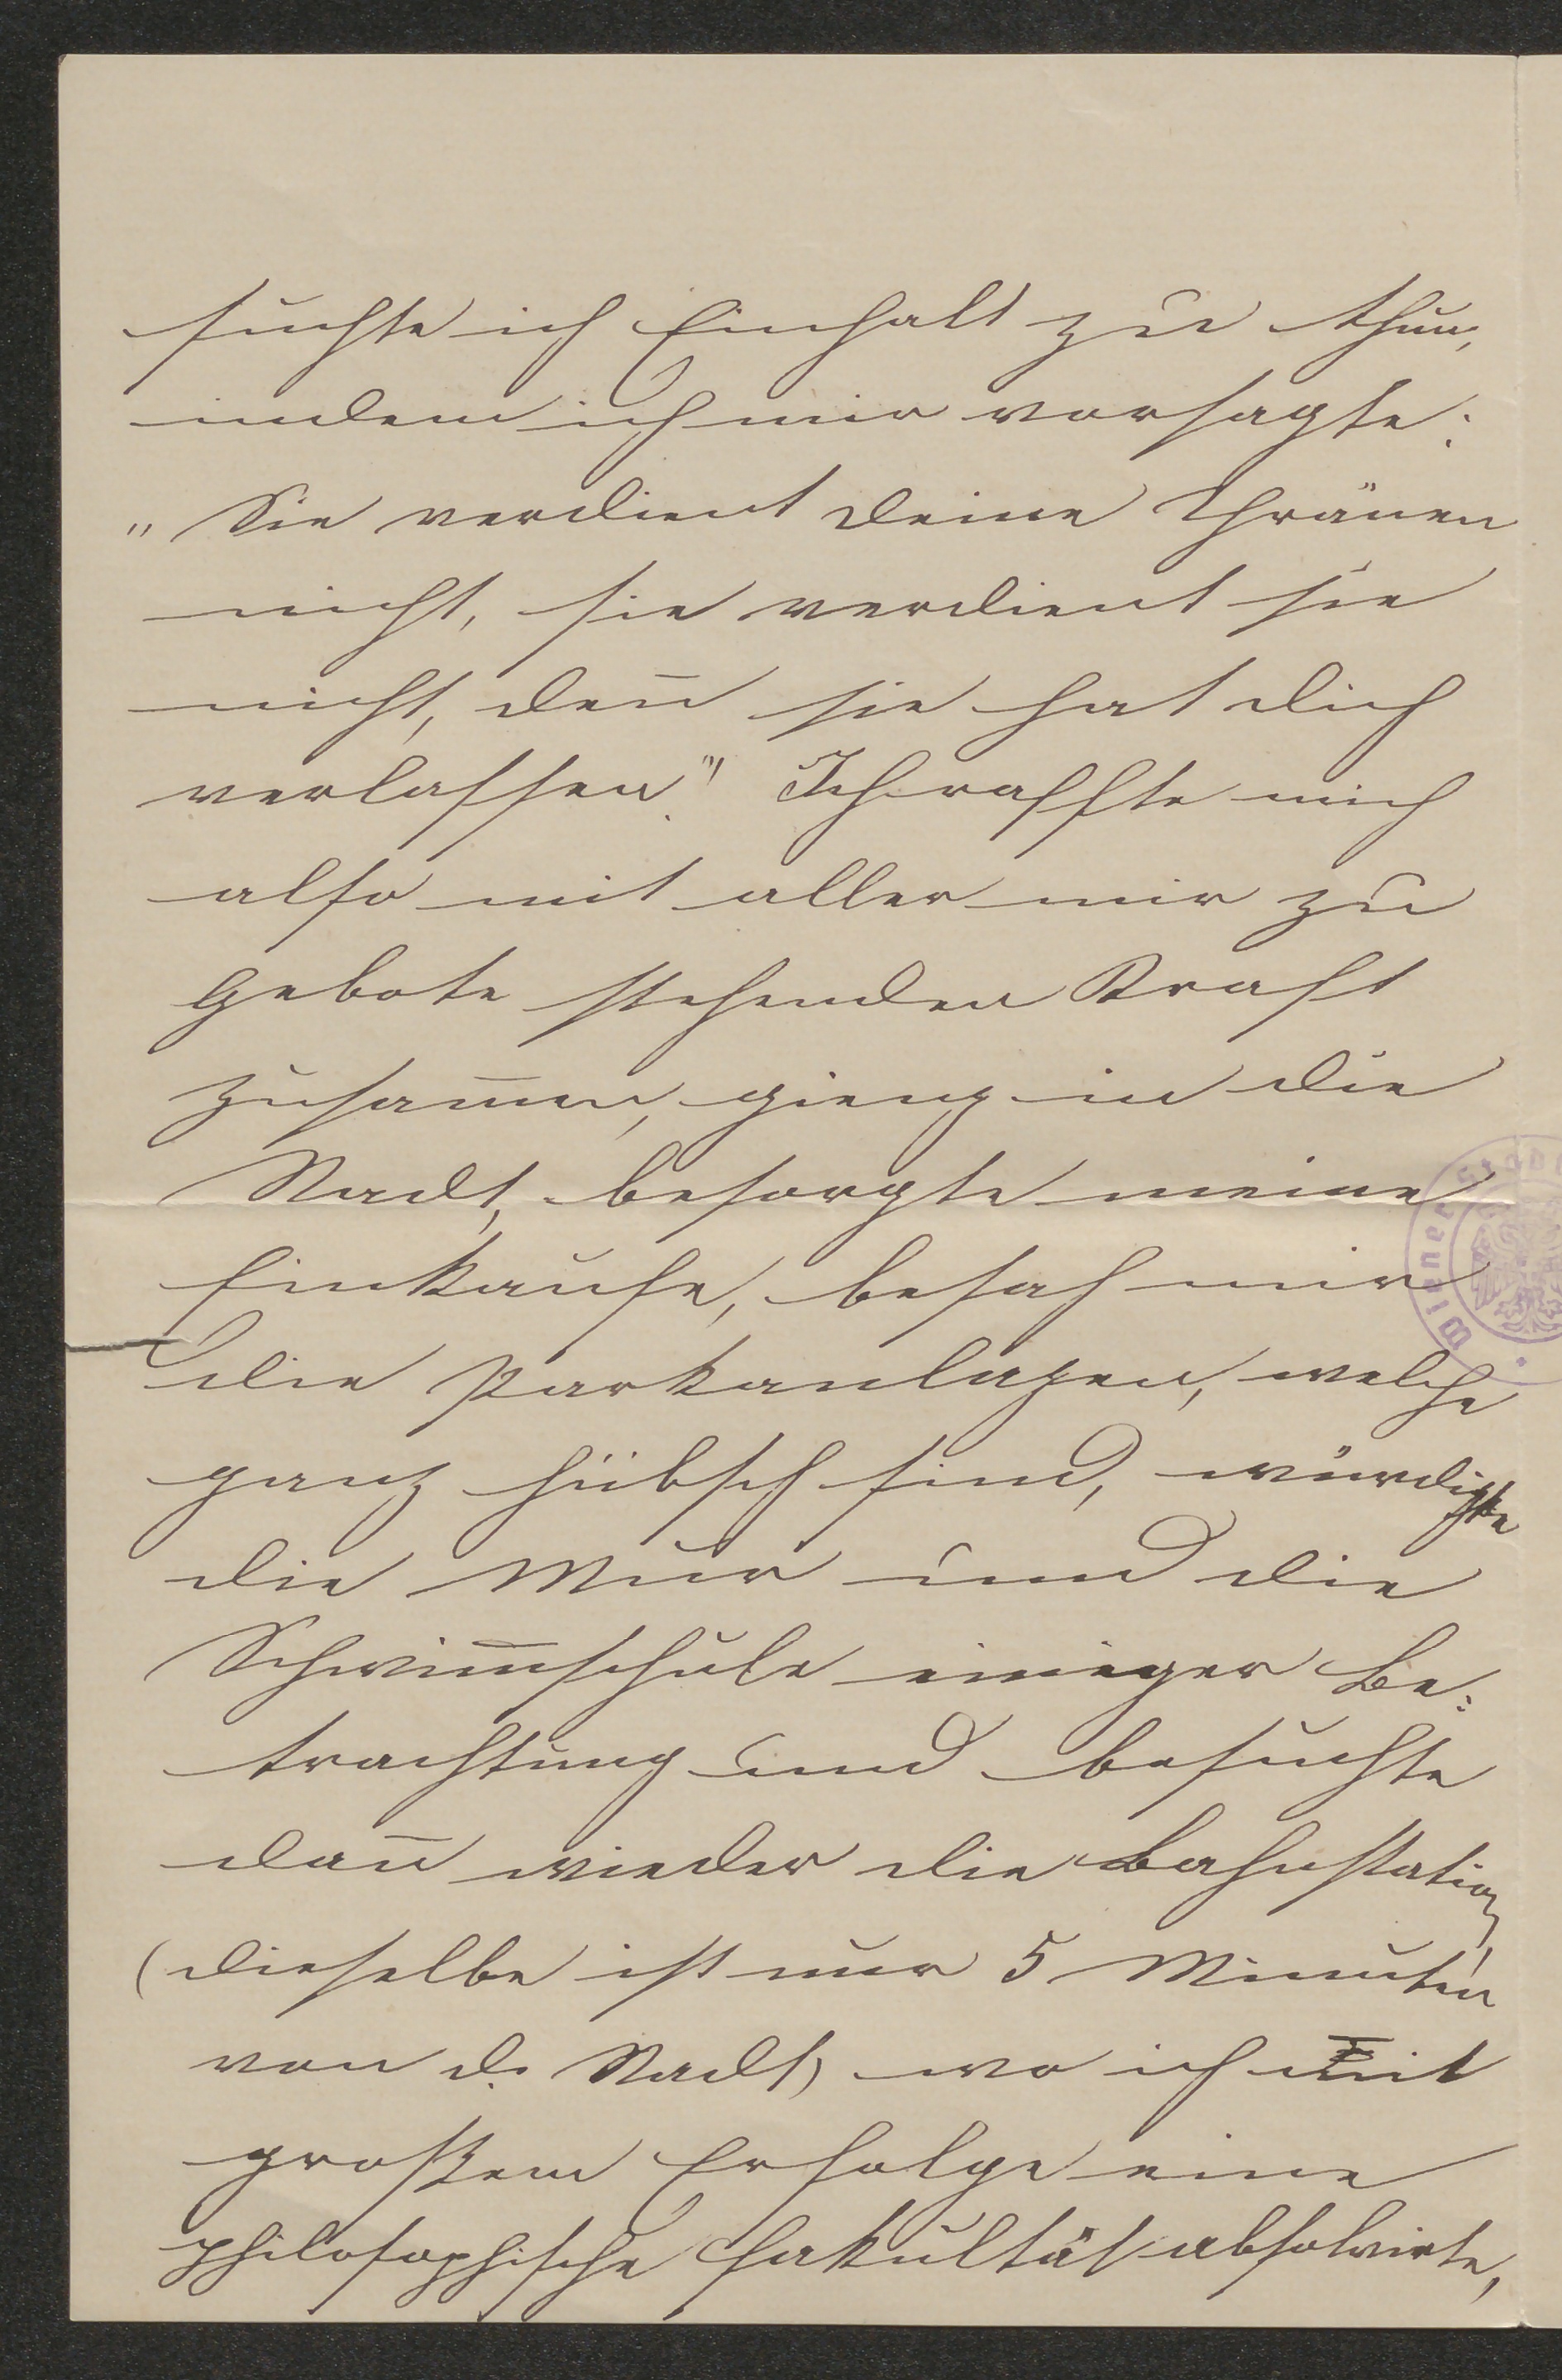 suchte ich Einhalt zu thun,
indem ich mir vorsagte:
„Sie verdient deine Thränen
nicht, sie verdient sie
nicht, den̄ sie hat dich
verlassen." Ich raffte mich
also mit aller mir zu
Gebote stehenden Kraft
zusam̄en, gieng in die
Stadt, besorgte meine
Einkäufe, besah mir
die Parkanlagen, welche
ganz hübsch sind, würdigte
die Mur und die
Schwim̄schule einiger Be:
trachtung und besuchte
dan̄ wieder die Bahnstation,
(dieselbe ist nur 5 Minuten
von d. Stadt) wo ich mit
großem Erfolge eine
philosophische Fakultät absolvirte,
Wiener Stad